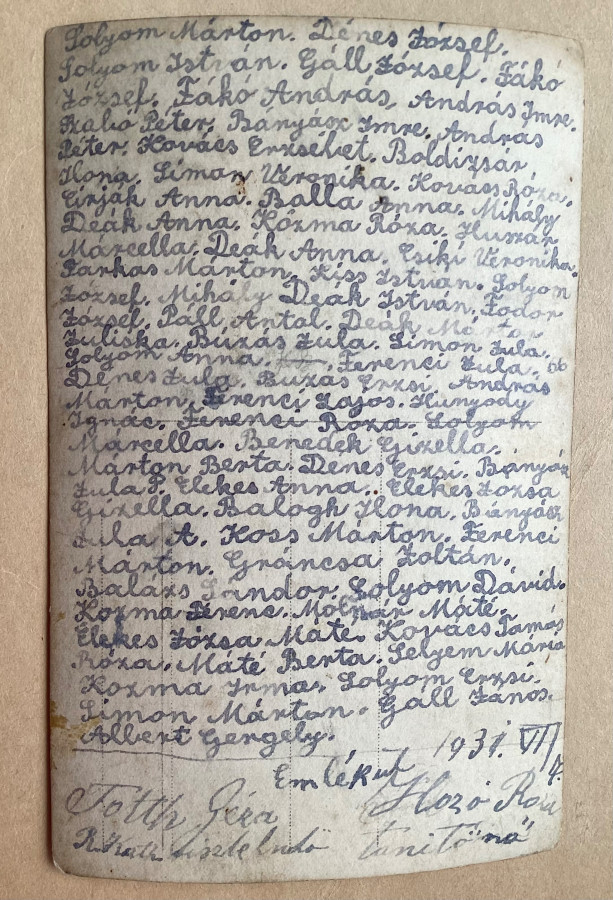 Solyom Márton. Dénes József.
Solyom István. Gáll József. Fákó
József. Fákó András, András Imre.
Szabó Péter. Bányász Imre. András
Péter. Kovács Erzsébet. Boldizsár
Ilona. Simon Veronika. Kovács Róza.
Cirják Anna. Balla Anna. Mihály
Deák Anna. Kozma Róza. Huszár
Márcella. Deák Anna. Csiki Veronika.
Farkas Márton. Kiss István. Solyom
József. Mihály Deák István. Fodor
József. Páll Antal. Deák Márton
Juliska. Buzás Jula. Simon Jula.
Solyom Anna. Ferenci Jula.
Dénes Jula. Buzás Erzsi. András
Márton. Ferenci Lajos. Hunyody
Ignác. Ferenci Róza. Solyom
Márcella. Benedek Gizella.
Márton Berta. Dénes Erzsi. Bányász
Jula P. Elekes Anna. Elekes Józsa
Gizella. Balogh Ilona. Bányász
Jula A. Koss Márton. Ferenci
Márton. Gráncsa Zoltán.
Balázs Sándor. Solyom Dávid.
Kozma Ferenc. Molnár Máté.
Elekes Józsa Máté. Kovács Tamás
Róza. Máté Berta. Selyem Mária
Kozma Irma. Solyom Erzsi.
Simon Márton. Gáll János.
Albert Gergely.
1931. VII
Emlékül
Tótth Géza
R. kath. tanítónő